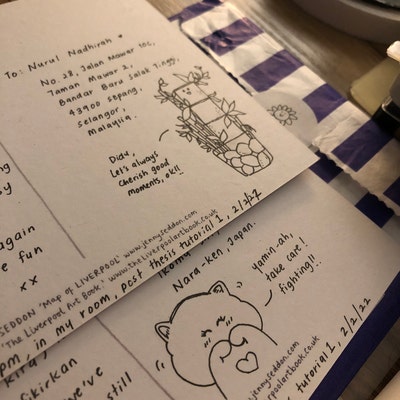 To: Nurul Nadhirah
No. 28, Jalan Mawar 10C,
Taman Mawar 2,
Bandar Baru Salak Tinggi,
43900 Sepang,
Selangor,
Malaysia.
Didu,
Let's always
cherish good
moments, ok!!
again
e fun
xx
SEDDON 'MAP OF LIVERPOOL' www.jennyseddon.com
'The Liverpool Art Book' www.theliverpoolartbook.co.uk
pm, in my room, post thesis tutorial 1, 2/2/22
Nara-ken, Japan.
yamin-ah,
take care!
fighting!!
jennyseddon.com
erpoolartbook.co.uk
tutorial 1, 2/2/22
kirkan
we've
still